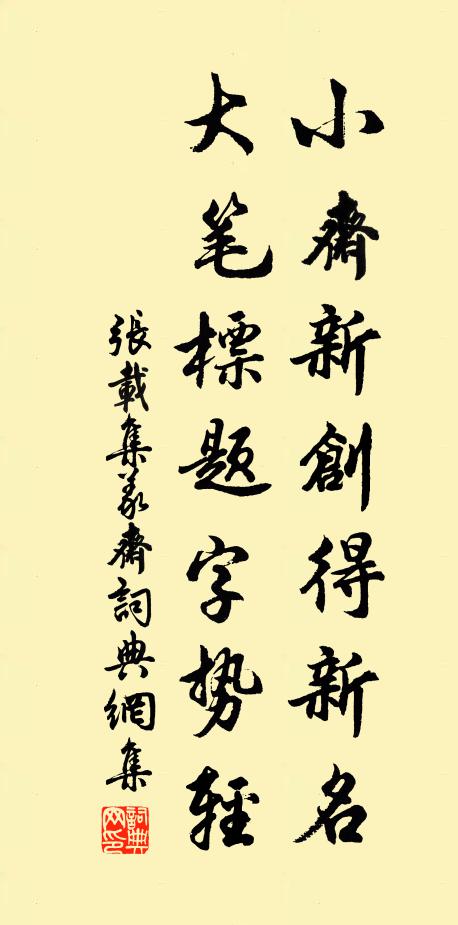 小齋新創得新名
大笔標題字势輕
張載集義齋詞典網集
詞典网印